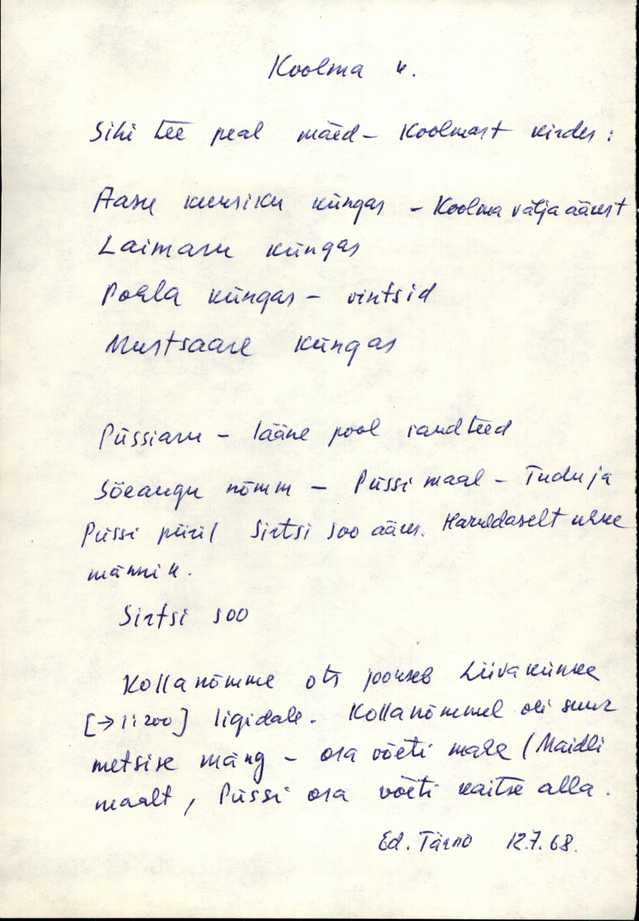 Koolma k.
Sihi tee peal mäed - Koolmast kirdes:
Aasu kuusiku küngas - Koolma välja äärest
Laimaru küngas
Poala küngas - vintsid
Mustsaare küngas
Püssiaru - lääne pool raudteed
Sõeaugu nõmm - Püssi maal - Tudu ja
Püssi piiril Sirtsi soo ääres. Haruldaselt
männik.
Sirtsi soo
Kollanõmme ots jookseb Liivakünka
[→1:200] ligidale. Kollanõmmel oli suur
metsise mäng - osa võeti maha (Maidli
maalt, Püssi osa võeti kaitse alla.
Ed. Tärno 12.7.68.